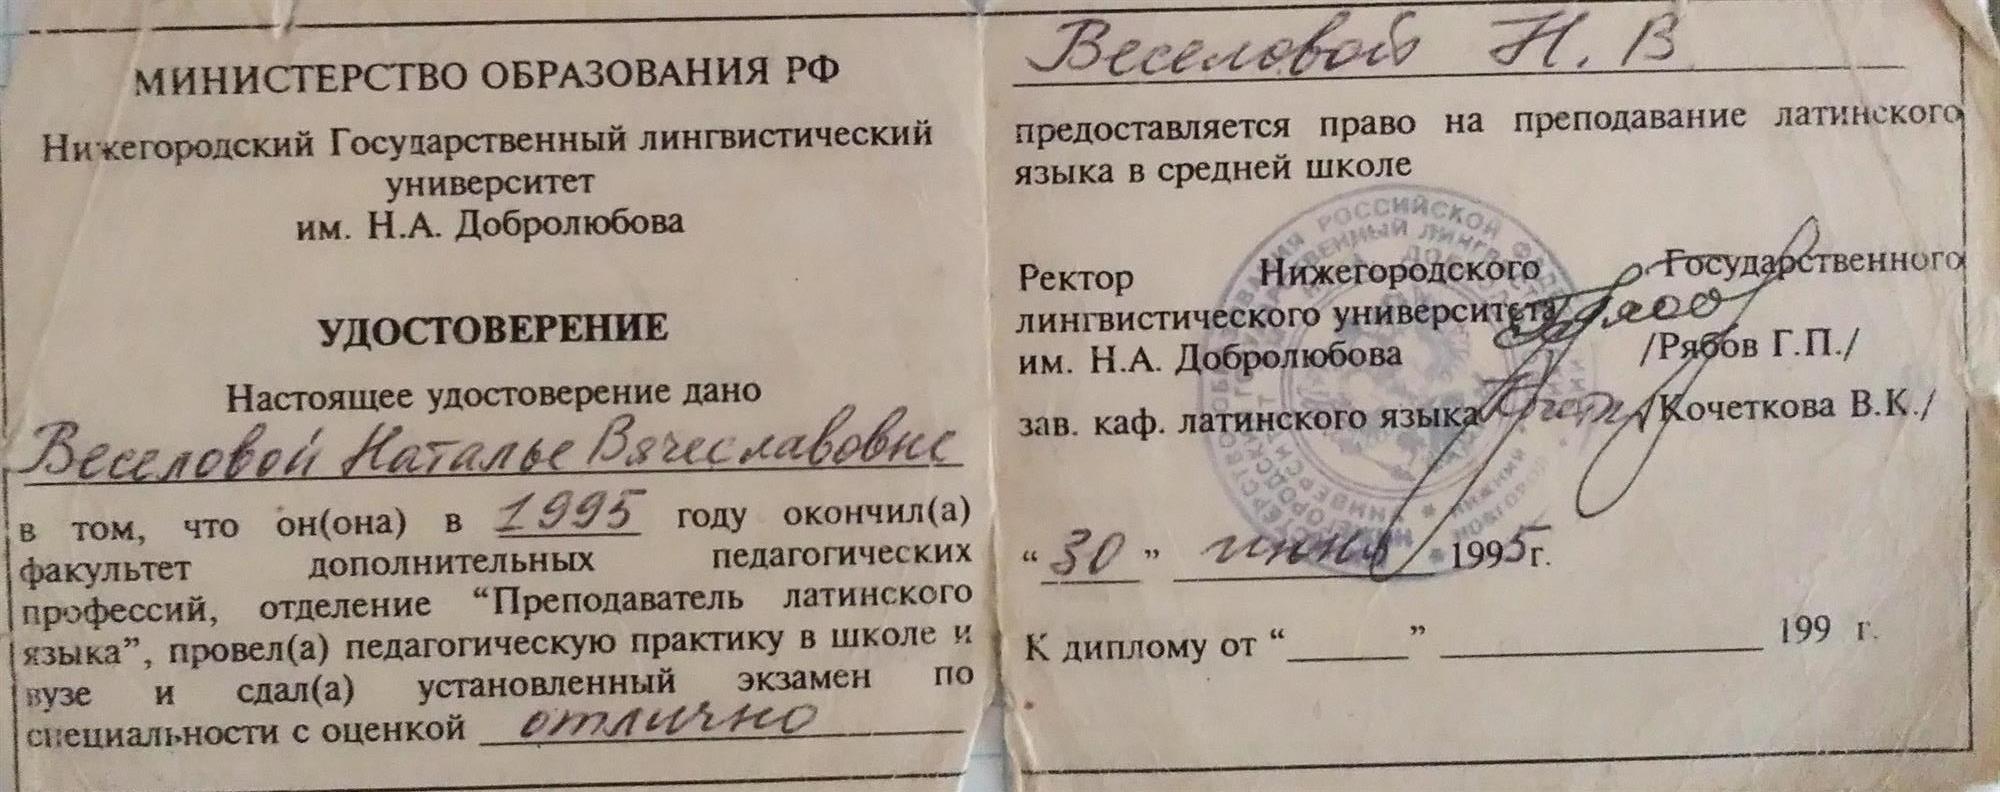 МИНИСТЕРСТВО ОБРАЗОВАНИЯ РФ
Нижегородский Государственный лингвистический
университет
им. Н.А. Добролюбова
УДОСТОВЕРЕНИЕ
Настоящее удостоверение дано
Веселовой Наталье Вячеславовне
в том, что он(она) в 1995 году окончил(а)
факультет дополнительных педагогических
профессий, отделение “Преподаватель латинского
языка”, провел(а) педагогическую практику в школе и
вузе и сдал(а) установленный экзамен по
специальности с оценкой отлично
Веселовой Н. В
предоставляется право на преподавание латинского
языка в средней школе
Ректор Нижегородского Государственного
лингвистического университета
им. Н.А. Добролюбова /Рябов Г.П./
зав. каф. латинского языка /Кочеткова В.К./
“30” июня 1995г.
К диплому от “______” ______ 199 г.